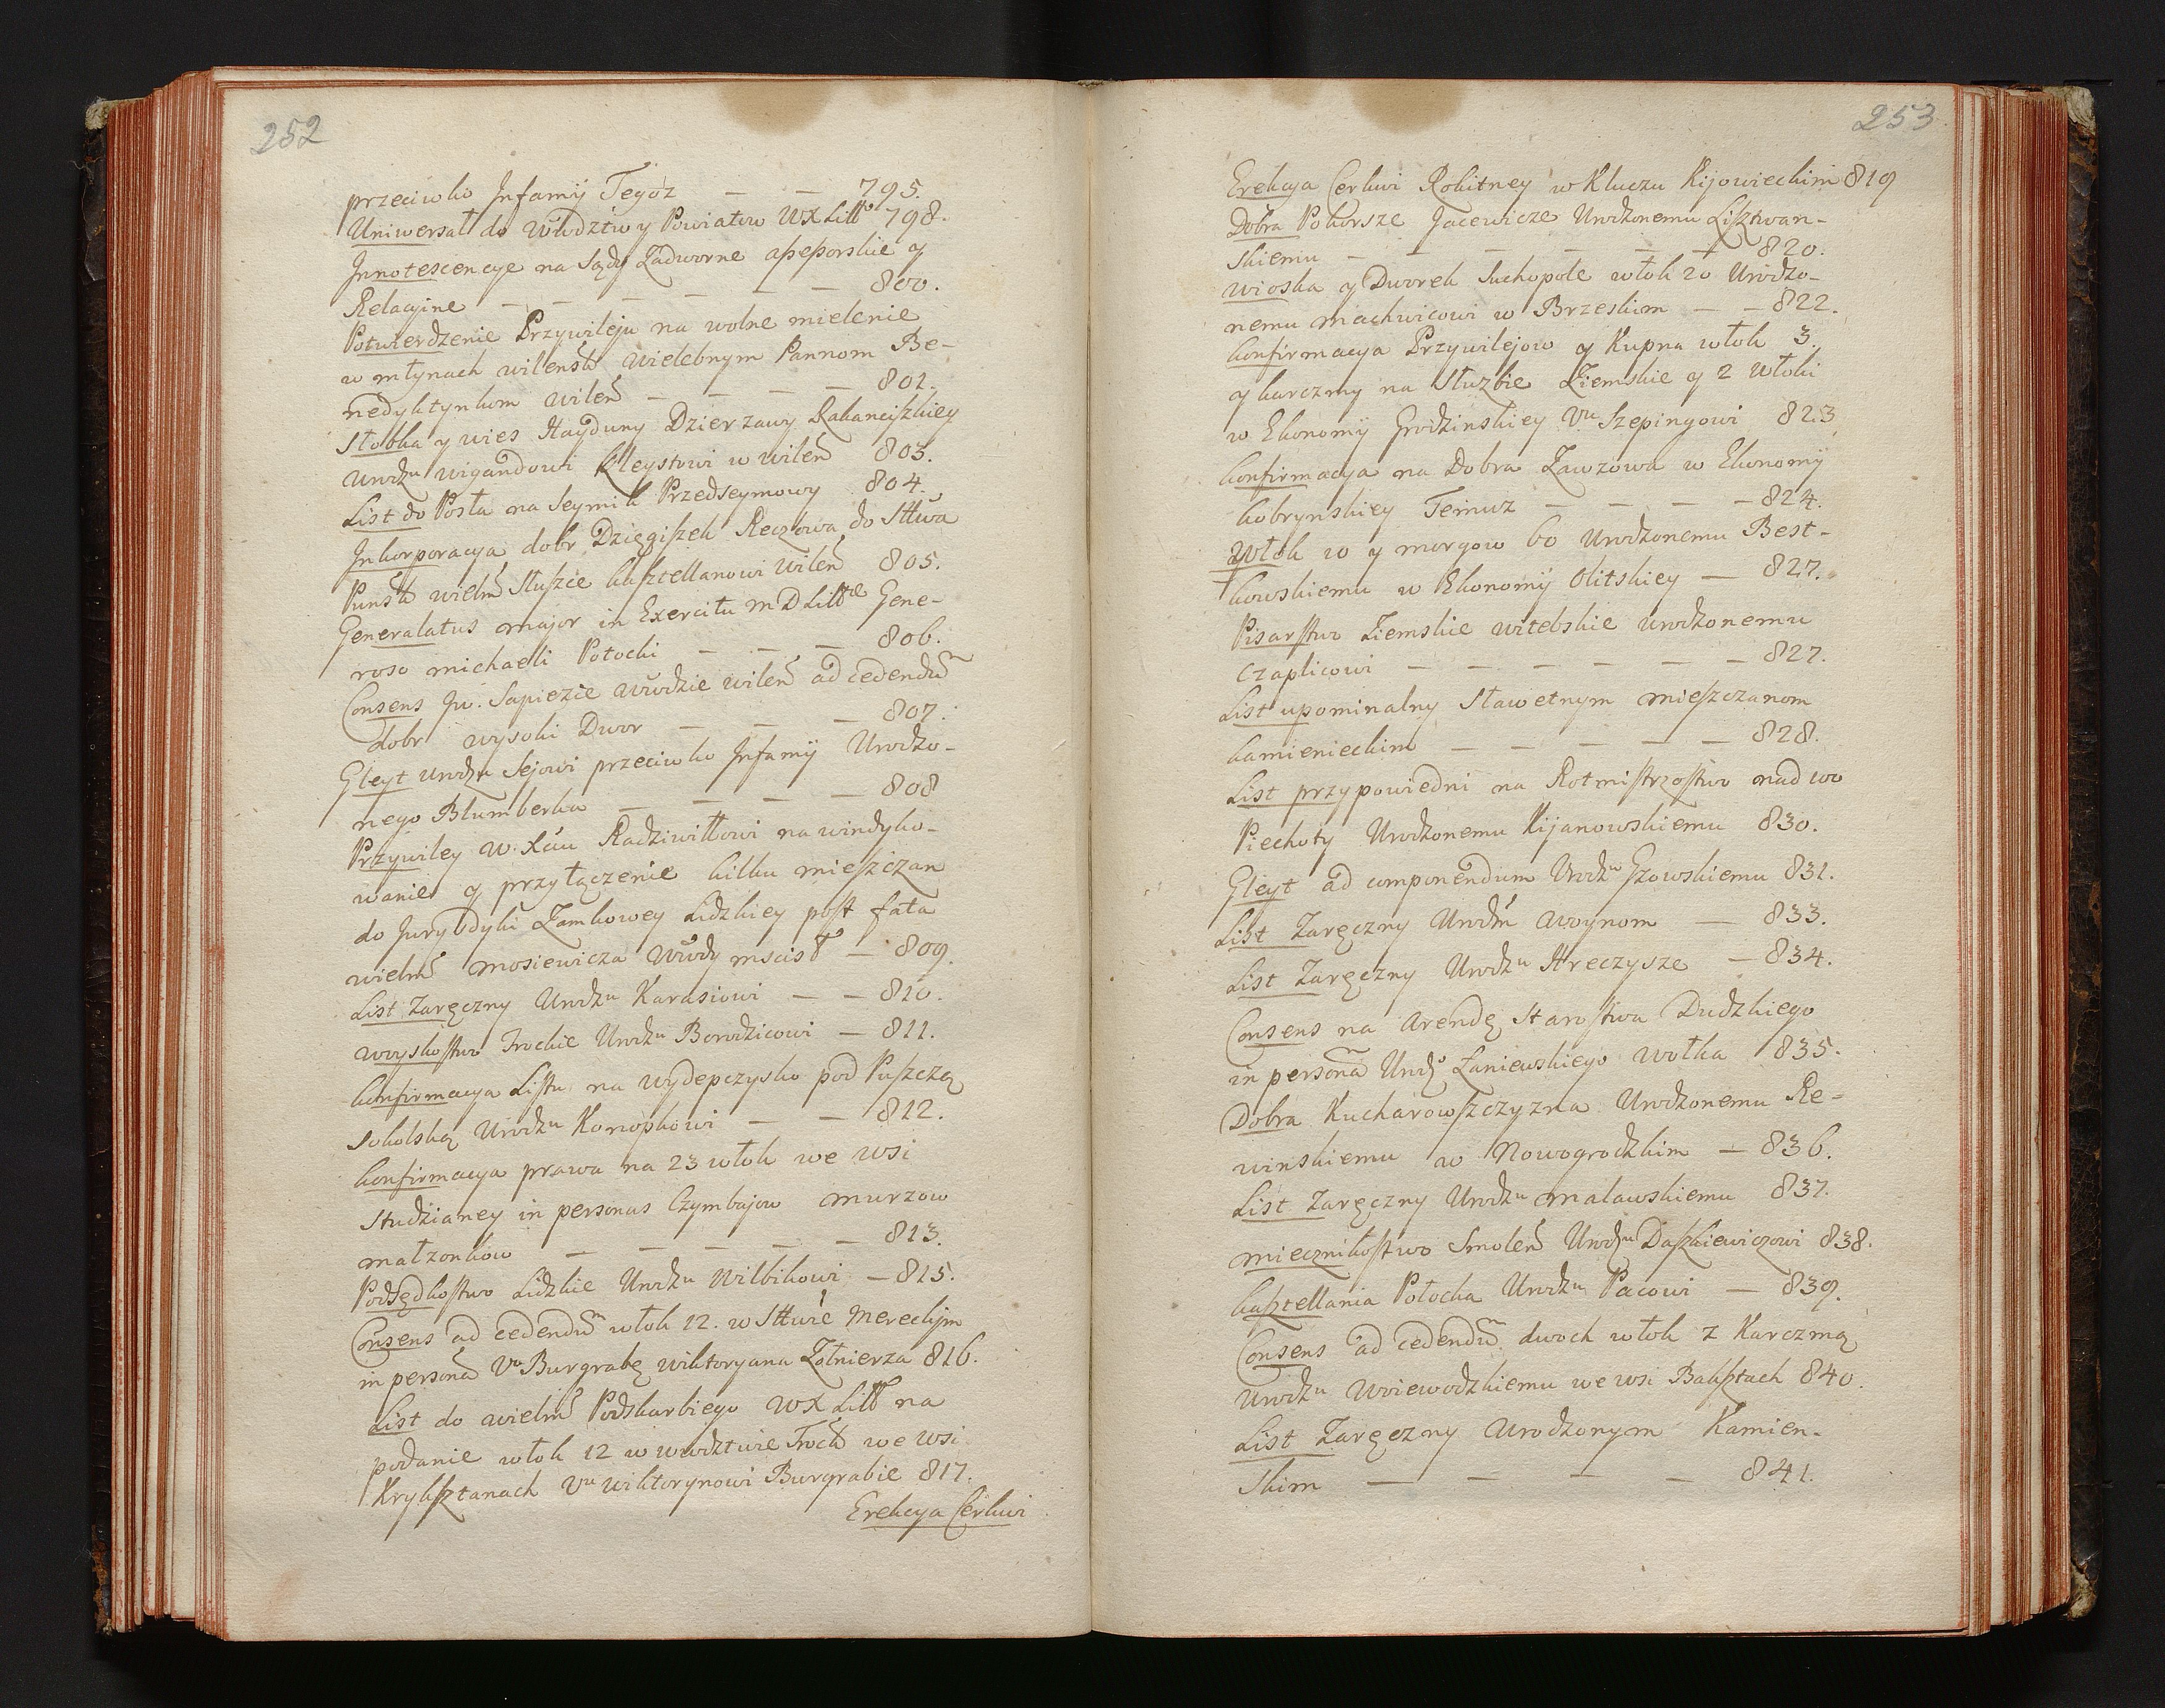 252
przeciwko Infamij Tegoż — — 795.
Uniwersał do Wwdztw y Powiatow WX Litt° 798.
Innotescencye na Sądy Zadworne assessorskie y
Relacyine — — — — — — 800.
Potwierdzenie Przywileju na wolne mielenie
w młynach wileńsk wielebnym Pannom Be-
nedyktynkom wileń — — — — 801.
Słobka y wies Hayduny Dzierzawy Rakanciszkiey
Urodzu Wigandowi Kleystowi w wileń 803.
List do Posła na Seymik Przedseymowy 804.
Inkorporacya dobr Dzięgiszek Reczowa do Sttwa
Puńsk wielm Słuszce kasztellanowi wileń 805.
Generalatus major in Exercitu M D Littae Gene-
roso Michaeli Potocki — — — 806.
Consens Jw. Sapiezie Wwodzie wileń ad cedendum
dobr wysoki Dwor — — — 807.
Gleyt Urodzu Sejowi przeciwko Infamij Urodzo-
nego Blumberka — — — — 808
Przywiley W. Xciu Radziwiłłowi na windyko-
wanie y przyłączenie kilku mieszczan
do Jurydyki Zamkowey Lidzkiey post fata
wielm Mosiewicza Wwdy mscisł° — 809.
List Zaręczny Urodzu Karasiowi — — 810.
Woyskostwo Trockie Urodzu Borodzicowi — 811.
konfirmacya Listu na wydepczysko pod Puszczą
Sokolską Urodzu Konopkowi — — 812.
konfirmacya prawa na 23 włok we wsi
Studzianey in personas Czymbajow Murzow
małzonkow — — — — — 813.
Podsędkostwo Lidzkie Urodzu Wilbikowi — 815.
Consens ad cedendum włok 12. w Sttwie Mereckim
in persona Vo Burgrabę wiktoryana Żołnierza 816.
List do wielm Podskarbiego WX Litt na
podanie włok 12 w wwdztwie Trock we wsi
Kryksztanach Vu wiktorynowi Burgrabie 817.
Erekcya Cerkwi
253.
Erekcya Cerkwi Rokitney w Kluczu Kijowieckim 819
Dobra Pokorsze Jacewicze Urodzonemu Lisztwan-
skiemu — — — — — 820.
wioska y Dworek Suchopole włok 20 Urodzo-
nemu Machwicowi w Brzeskim — — 822.
konfirmacya Przywilejow y Kupna włok 3.
y karczmy na Służbie Ziemskie y 2 włoki
w Ekonomij Grodzinskiey Vu Szepingowi 823
konfirmacya na Dobra Zawzowa w Ekonomij
kobrynskiey Temuz — — — — 824.
włok 10 y morgow 60 Urodzonemu Best-
kowskiemu w Ekonomij Olitskiey — 827.
Pisarstwo Ziemskie witebskie Urodzonemu
Czaplicowi — — — — — — 827.
List upominalny Sławetnym mieszczanom
kamienieckim — — — — — 828.
List przypowiedni na Rotmistrzostwo nad 100
Piechoty Urodzonemu Kijanowskiemu 830.
Gleyt ad componendum Urodzu Gzowskiemu 831.
List Zaręczny Urodzm Woynom — 833.
List Zaręczny Urodzu Hreczysze — 834.
Consens na Arendę Starostwa Dudzkiego
in persona Urodz° Łaniewskiego Wołka 835.
Dobra Kucharowszczyzna Urodzonemu Re-
winskiemu w Nowogrodzkim — 836.
List Zaręczny Urodzu Malawskiemu 837.
Miecznikostwo Smoleń Urodzu Daszkiewiczowi 838.
kasztellania Połocka Urodzu Pacowi — 839.
Consens ad cedendum dwoch włok z Karczmą
Urodzu Woiewodzkiemu we wsi Baksztach 840.
List Zaręczny Urodzonym Kamien-
skim — — — — 841.